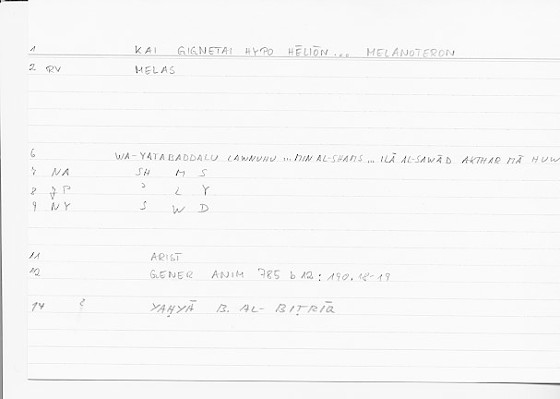 1 KAI GIGNETAI HYPO HĒLIŌN... MELANOTERON
2 RV MELAS
6 WA-YATABADDALU LAWNUHU ... MIN AL-SHAMS ... ILĀ AL-SAWĀD AKTHAR MĀ HUW
7 NA SH M S
8 JP ʾ L Y
9 NY S W D
11 ARIST
12 GENER ANIM 785 b 12: 190.18-19
14 YAḤYĀ B. AL-BIṬRĪQ